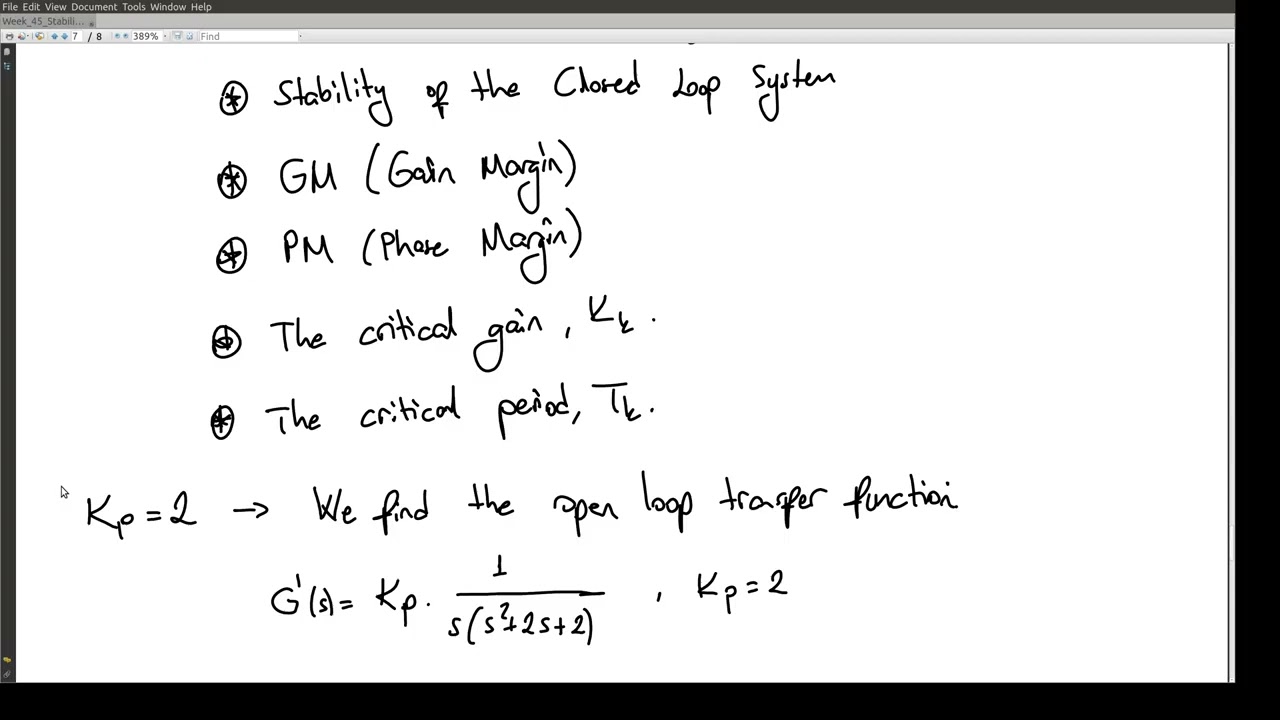 File Edit View Document Tools Window Help
Week_45_Stabili...
7 / 8 389% Find
⊛ Stability of the Closed Loop System
⊛ GM (Gain Margin)
⊛ PM (Phase Margin)
⊛ The critical gain, K_k.
⊛ The critical period, T_k.
K_p = 2 → We find the open loop transfer function
G'(s) = K_p · 1 / s(s²+2s+2) , K_p = 2